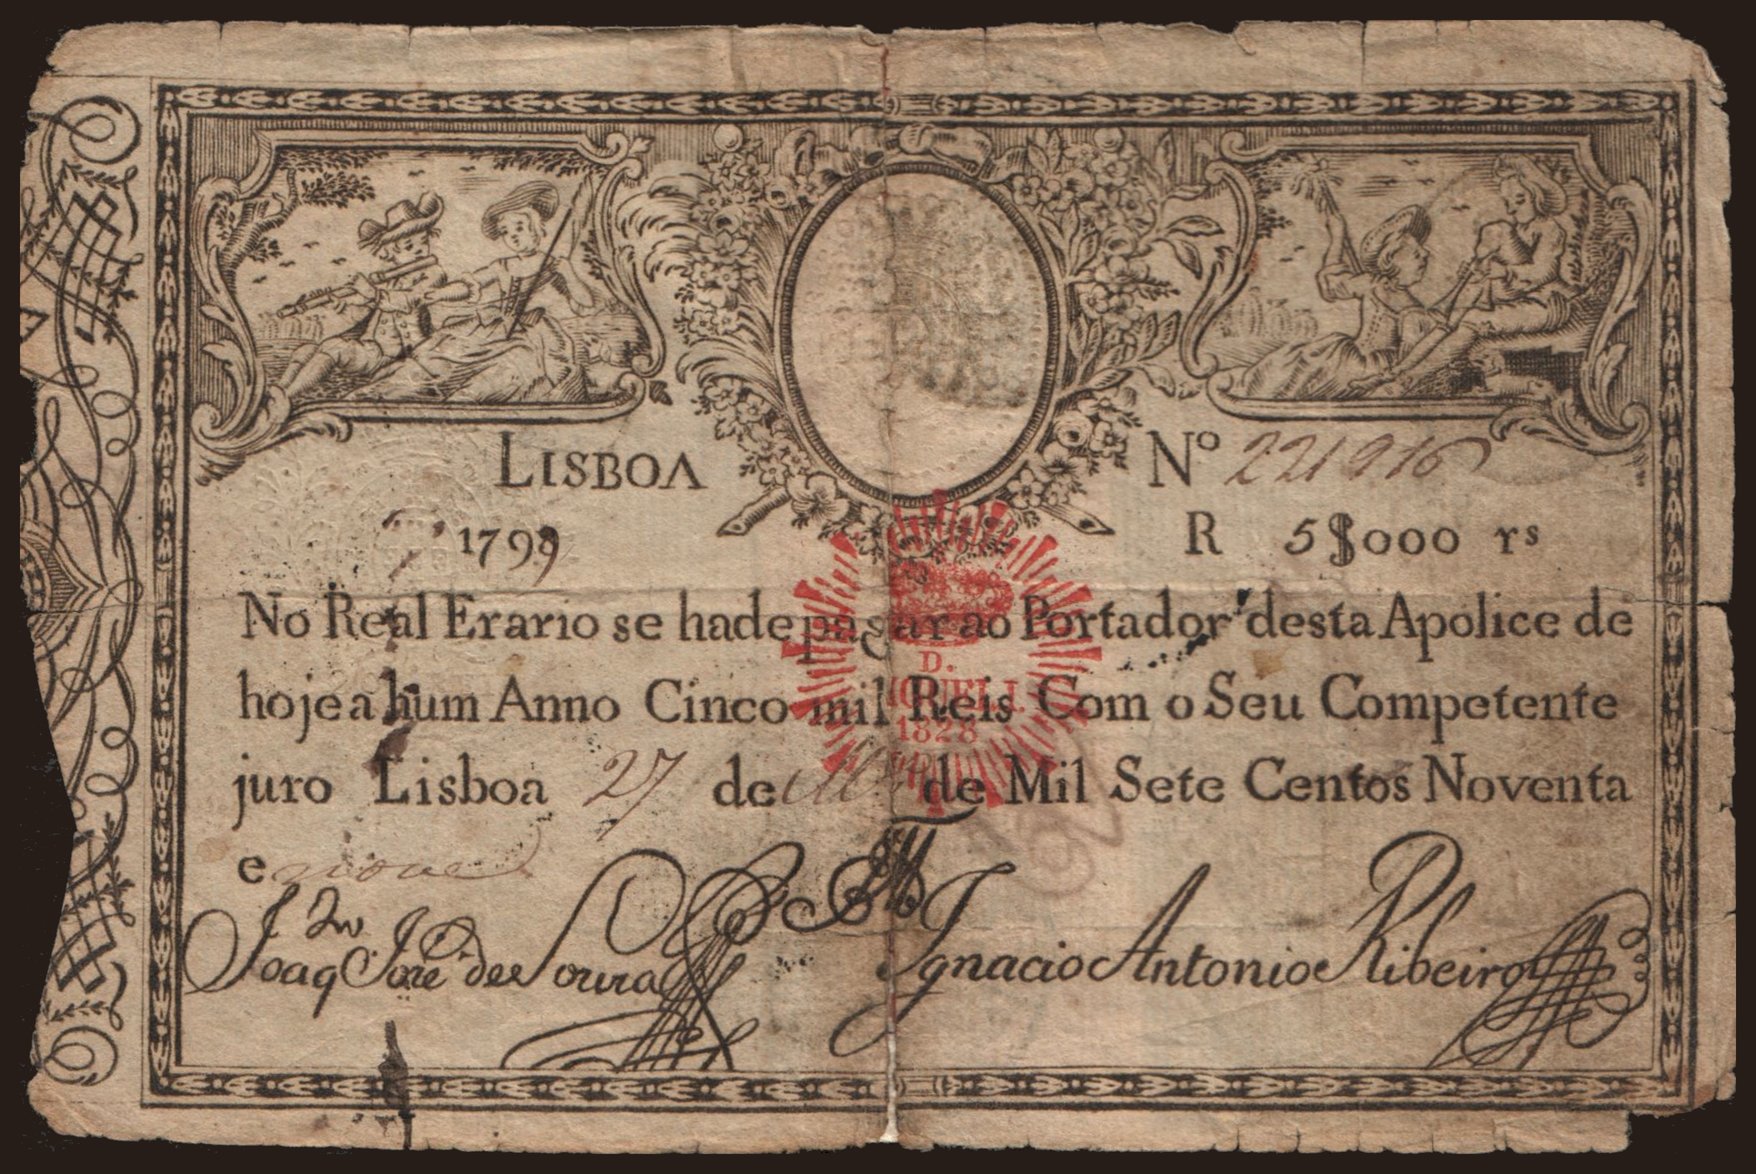 LISBOA
Nº 221916
1799
R 5$000 rs
No Real Erario se hade pagar ao Portador desta Apolice de
hoje a hum Anno Cinco mil Reis Com o Seu Competente
D.
MIGUEL I.
1828
juro Lisboa 27 de de Mil Sete Centos Noventa
e nove
Joaq Jose de Souza
Ignacio Antonio Ribeiro